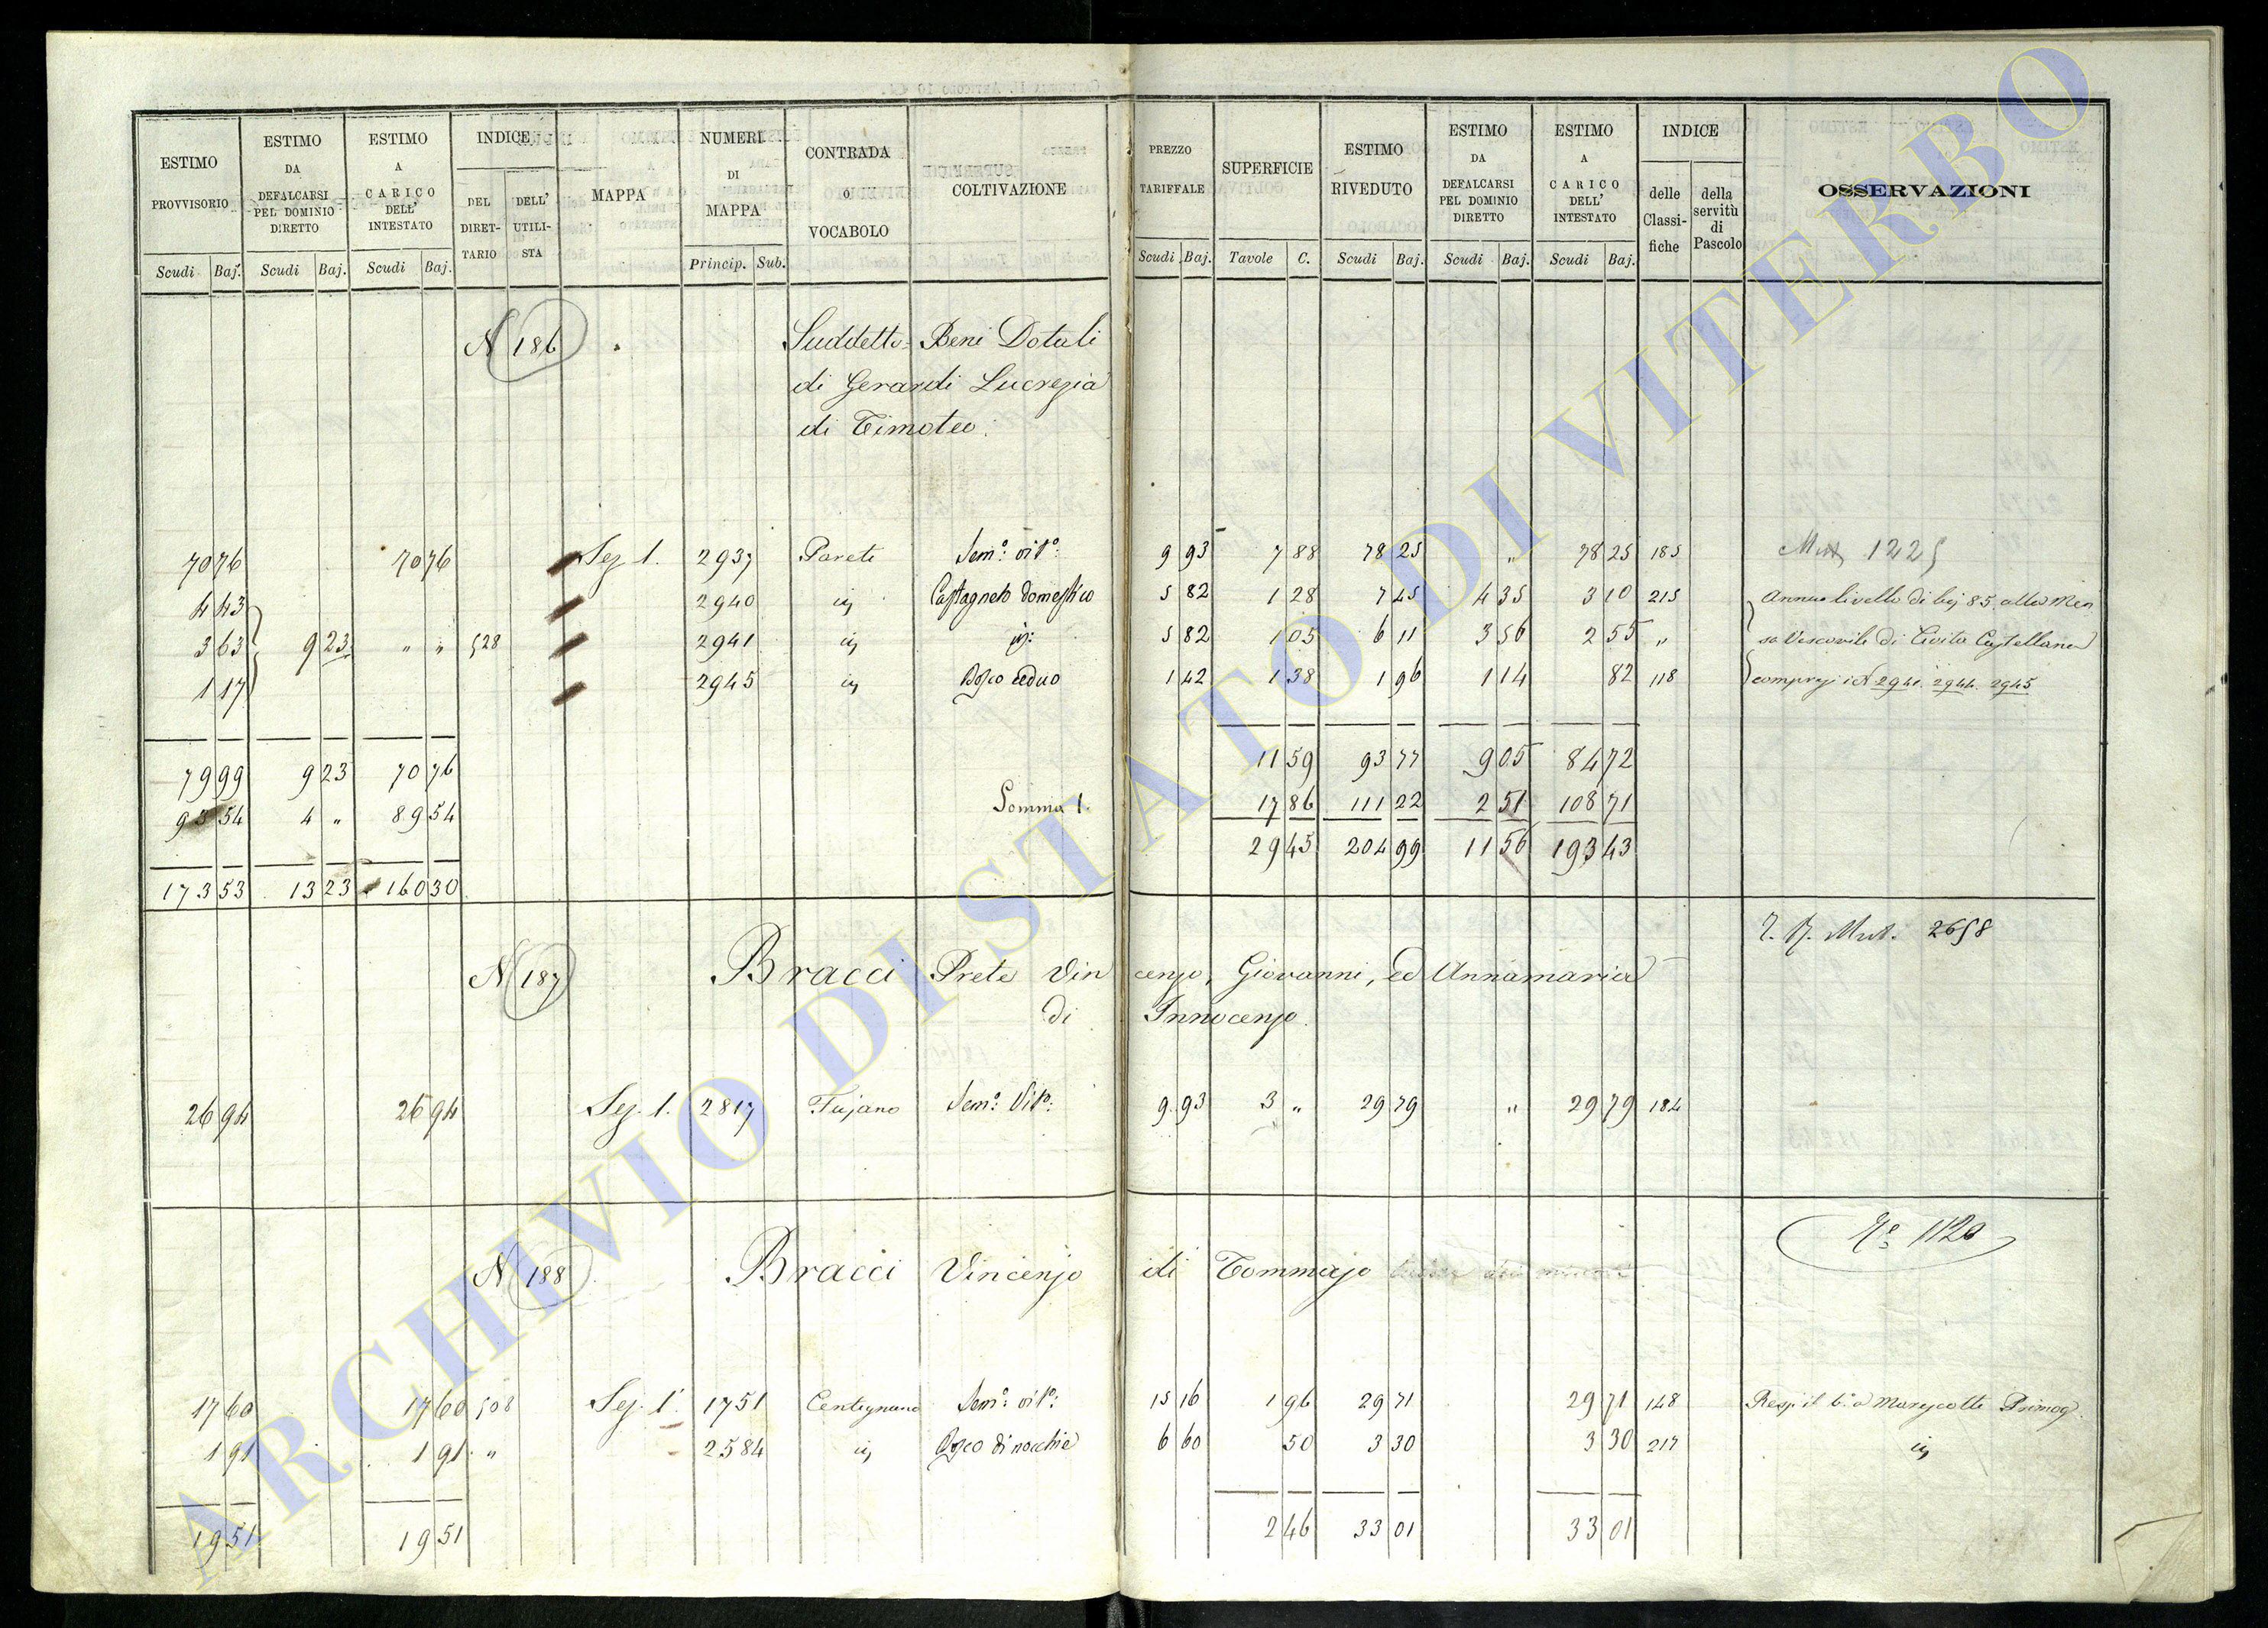 ESTIMO PROVVISORIO Scudi Baj.
ESTIMO DA DEFALCARSI PEL DOMINIO DIRETTO Scudi Baj.
ESTIMO A CARICO DELL' INTESTATO Scudi Baj.
INDICE DEL DIRETTARIO DELL' UTILISTA
MAPPA
NUMERI DI MAPPA Princip. Sub.
CONTRADA O VOCABOLO
COLTIVAZIONE
PREZZO TARIFFALE Scudi Baj.
SUPERFICIE Tavole C.
ESTIMO RIVEDUTO Scudi Baj.
ESTIMO DA DEFALCARSI PEL DOMINIO DIRETTO Scudi Baj.
ESTIMO A CARICO DELL' INTESTATO Scudi Baj.
INDICE delle Classifiche della servitù di Pascolo
OSSERVAZIONI
N 186 Suddetto= Beni Dotali
di Gerardi Lucrezia
di Timoteo.
70 76 70 76 Sez. 1. 2937 Pareti Sem.° vit.°: 9 93 7 88 78 25 " 78 25 185 Mut 1225
4 43 2940 id Castagneto domestico 5 82 1 28 7 45 4 35 3 10 215 Annuo livello di baj 85 alla Men
3 63 9 23 " " 528 2941 id id: 5 82 1 05 6 11 3 56 2 55 " sa Vescovile di Civita Castellana
1 17 2945 id Bosco ceduo 1 42 1 38 1 96 1 14 82 118 compresi i N 2941. 2944. 2945
79 99 9 23 70 76 11 59 93 77 9 05 84 72
93 54 4 " 89 54 Somma 1. 17 86 111 22 2 51 108 71
29 45 204 99 11 56 193 43
173 53 13 23 160 30
Mut. 2658
N 187 Bracci Prete Vincenzo, Giovanni, ed Annamaria
di Innocenzo.
26 94 26 94 Sez. 1. 2817 Fujano Sem.° Vit.°: 9 93 3 " 29 79 " 29 79 184
1120
N 188 Bracci Vincenzo di Tommaso
17 60 17 60 508 Sez. 1. 1751 Centignano Sem.° vit.°: 15 16 1 96 29 71 29 71 148 Resp. il 6.a Marescotti Primog.
1 91 1 91 " 2584 id Bosco di nocchie 6 60 50 3 30 3 30 217 id
19 51 19 51 2 46 33 01 33 01
ARCHIVIO DI STATO DI VITERBO